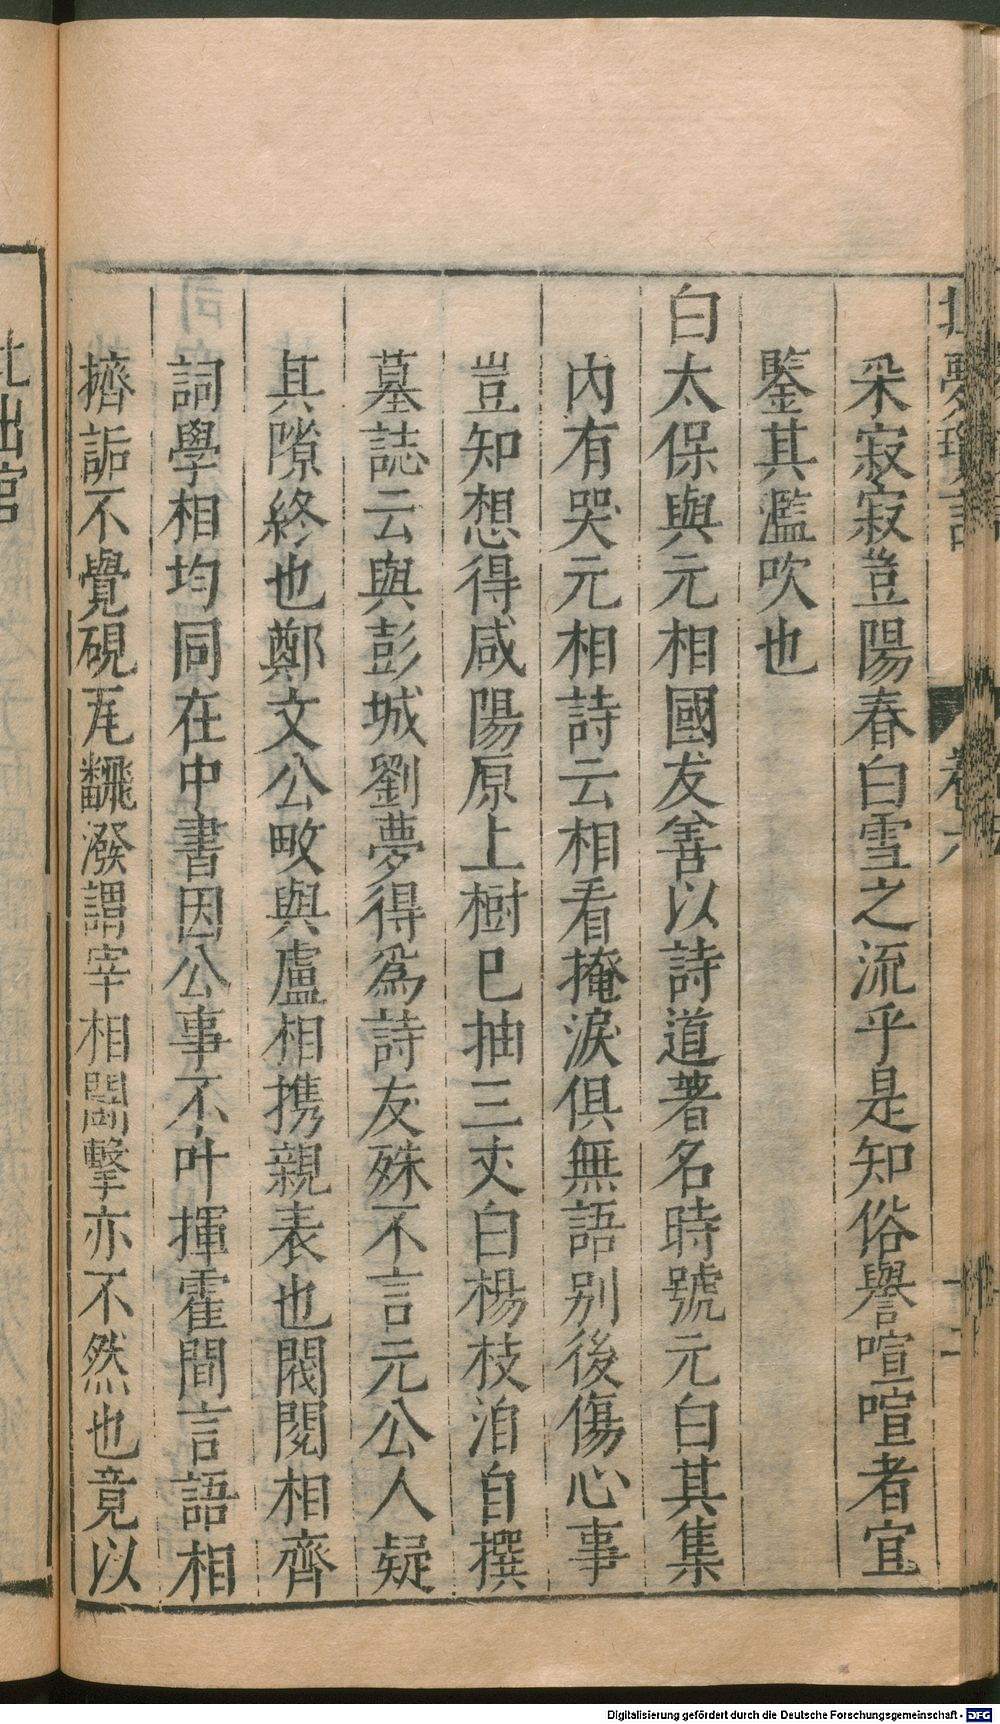 夢瑣言
卷六
采寂寂豈陽春白雪之流乎是知俗譽喧喧者宜
鑒其濫吹也
白太保與元相國友善以詩道著名時號元白其集
內有哭元相詩云相看掩淚俱無語别後傷心事
豈知想得咸陽原上樹已抽三丈白楊枝洎自撰
墓誌云與彭城劉夢得爲詩友殊不言元公人疑
其隙終也鄭文公畋與盧相携親表也閥閱相齊
詞學相均同在中書因公事不叶揮霍間言語相
擠詬不覺硯瓦翻潑謂宰相鬬擊亦不然也竟以
此出官
Digitalisierung gefördert durch die Deutsche Forschungsgemeinschaft - DFG